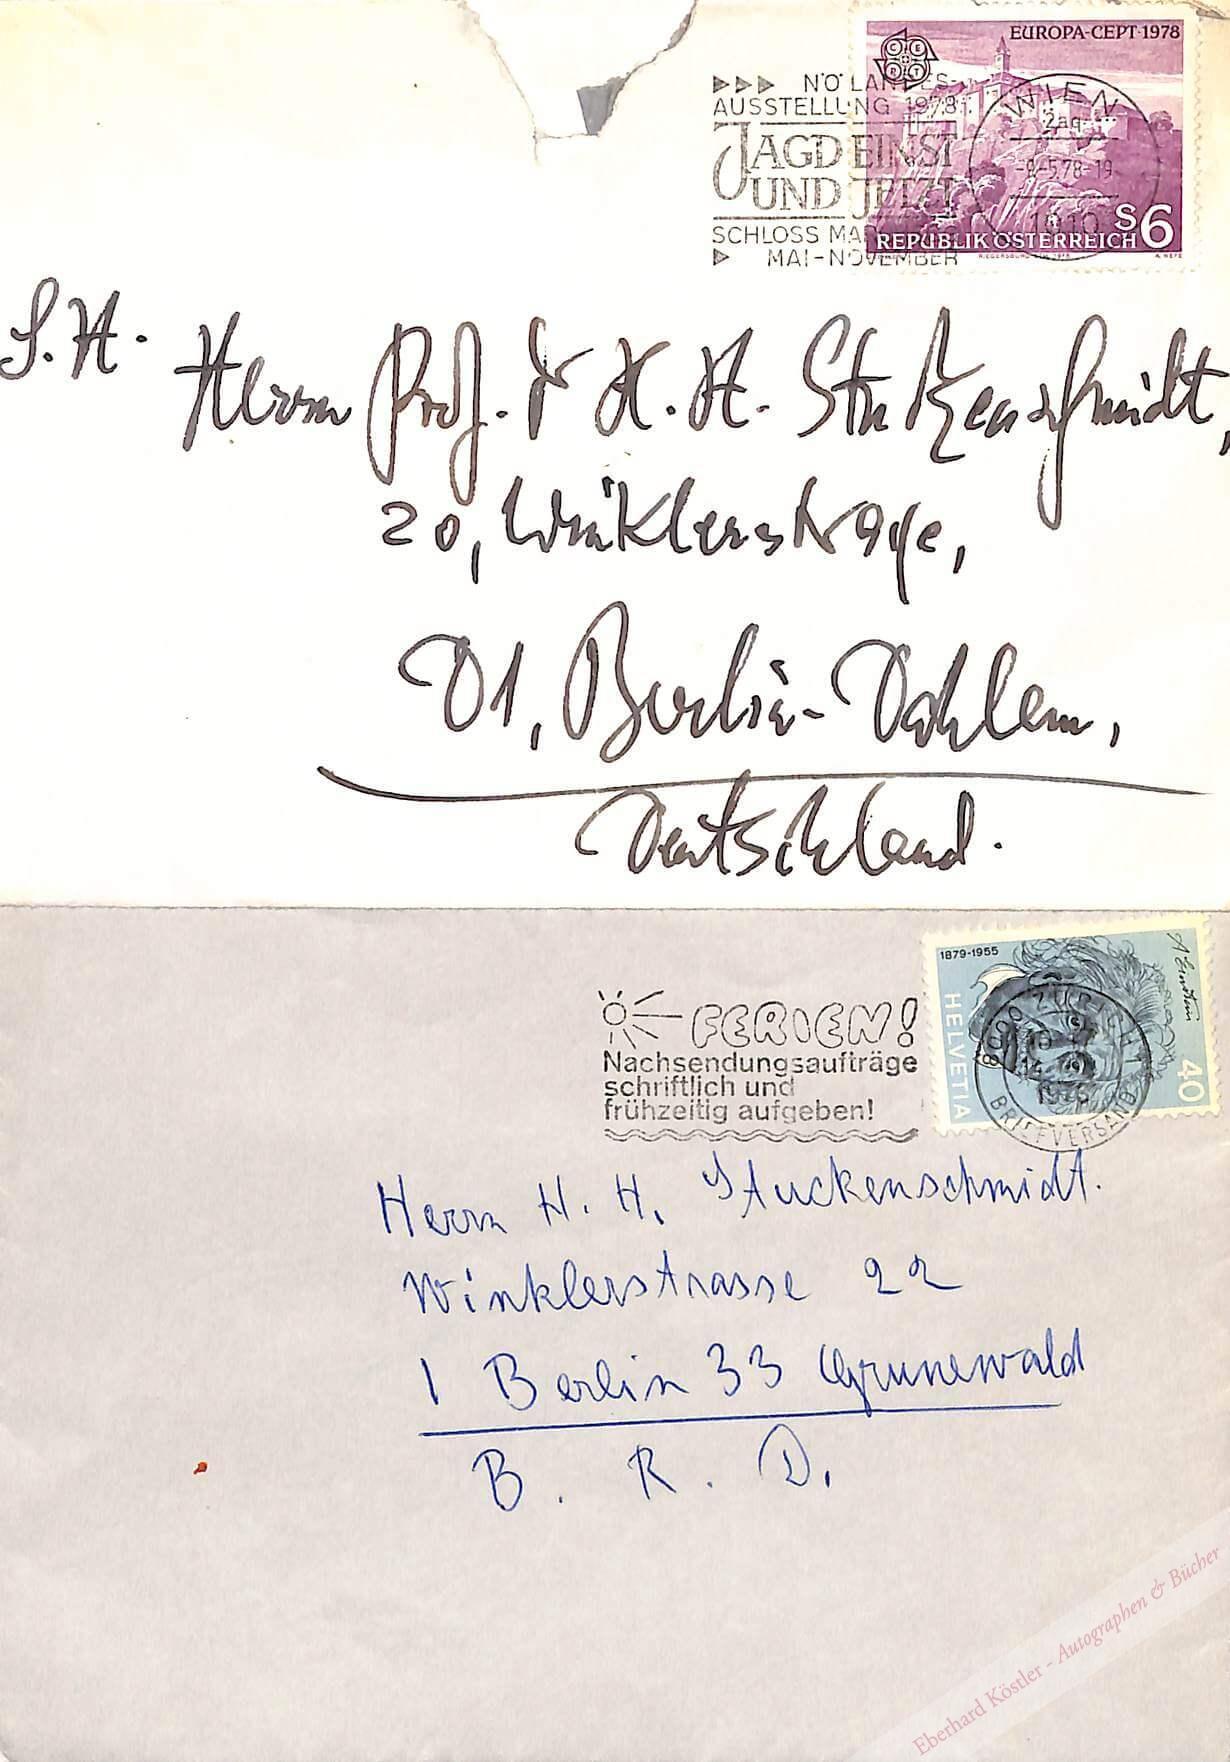 EUROPA-CEPT 1978
NÖ LANDES-
AUSSTELLUNG 1978
JAGD EINST
UND JETZT
SCHLOSS MA
MAI-NOVEMBER
WIEN
-5.78-19
1010
REPUBLIK ÖSTERREICH S6
S.H.
Herrn Prof. Dr H. H. Stuckenschmidt,
20, Winklerstrasse,
D1, Berlin-Dahlem,
Deutschland.
1879-1955
HELVETIA
40
8000 ZÜRICH
BRIEFVERSAND
FERIEN!
Nachsendungsaufträge
schriftlich und
frühzeitig aufgeben!
Herrn H. H. Stuckenschmidt.
Winklerstrasse 22
1 Berlin 33 Grunewald
B. R. D.
Eberhard Köstler - Autographen & Bücher